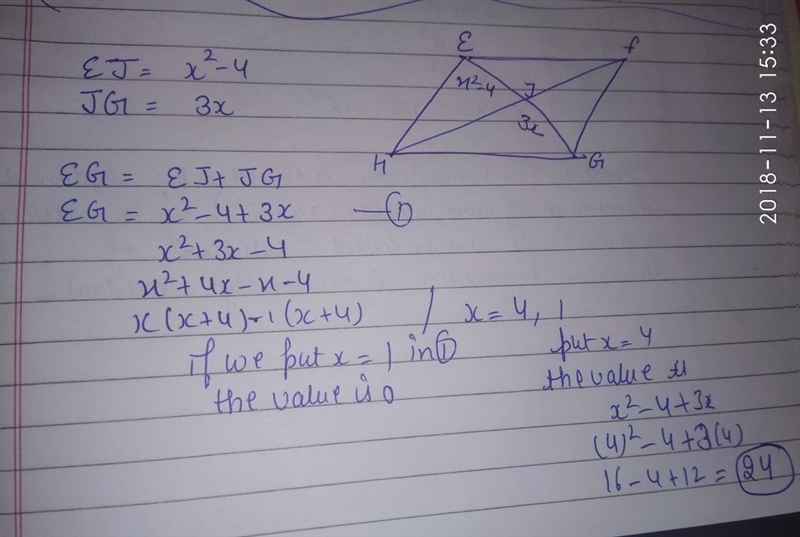 EJ = x²-4
JG = 3x
E
f
x²-4
J
3x
H
G
EG = EJ + JG
EG = x²-4+3x —①
x²+3x-4
x²+4x-x-4
x(x+4)-1(x+4) / x=4, 1
if we put x=1 in ①
the value is 0
put x=4
the value is
x²-4+3x
(4)²-4+3(4)
16-4+12=24
2018-11-13 15:33